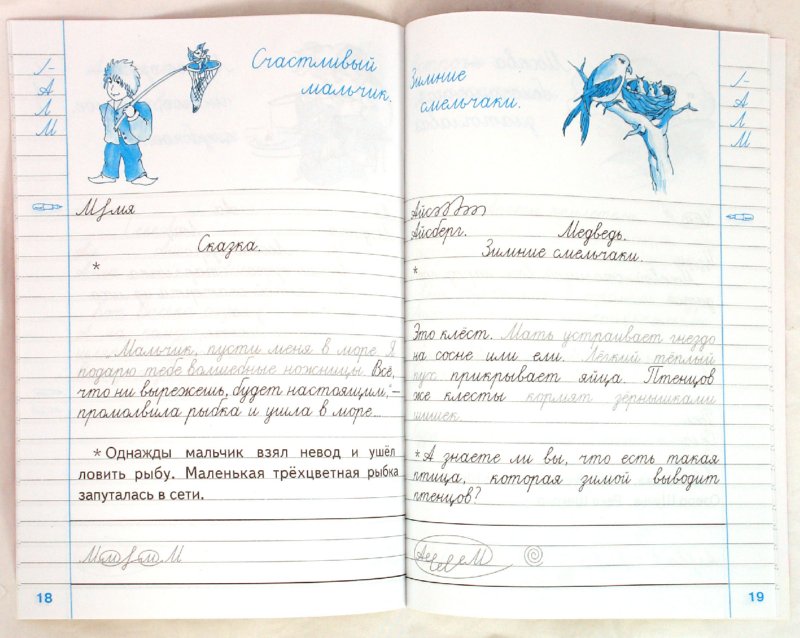 1
А
Л
М
Счастливый
мальчик.
Мямя
Сказка.
*
Мальчик, пусти меня в море. Я
подарю тебе волшебные ножницы. Всё,
что ни вырежешь, будет настоящим,"–
промолвила рыбка и ушла в море...
* Однажды мальчик взял невод и ушёл
ловить рыбу. Маленькая трёхцветная рыбка
запуталась в сети.
18
Зимние
смельчаки.
1
А
Л
М
Айс
Айсберг. Медведь.
Зимние смельчаки.
*
Это клёст. Мать устраивает гнездо
на сосне или ели. Лёгкий тёплый
пух прикрывает яйца. Птенцов
же клесты кормят зёрнышками
шишек.
* А знаете ли вы, что есть такая
птица, которая зимой выводит
птенцов?
19